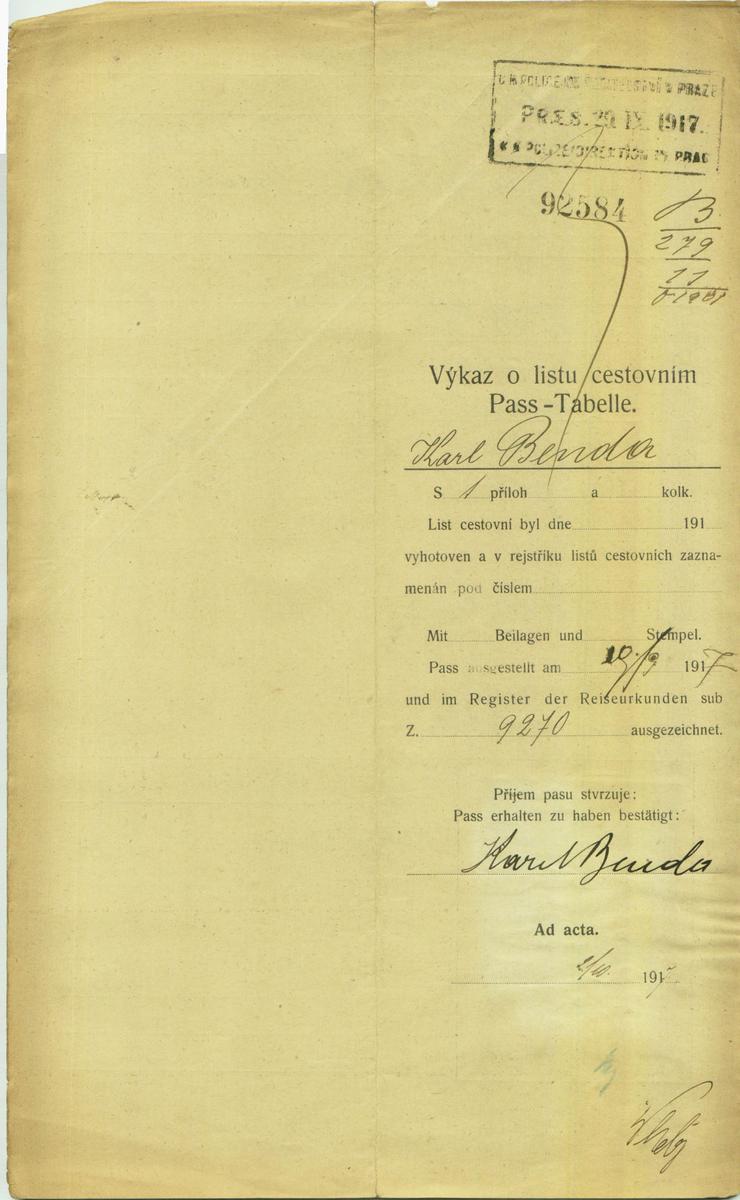 PRÆS. IX. 1917.
K K POLIZEIDIREKTION IN PRAG
92584
B
279
11
Výkaz o listu cestovním
Pass-Tabelle.
Karl Benda
S 1 příloh a kolk.
List cestovní byl dne 191
vyhotoven a v rejstříku listů cestovních zazna-
menán pod číslem
Mit Beilagen und Stempel.
Pass ausgestellt am /9 1917
und im Register der Reiseurkunden sub
Z. 9270 ausgezeichnet.
Příjem pasu stvrzuje:
Pass erhalten zu haben bestätigt:
Karel Benda
Ad acta.
191